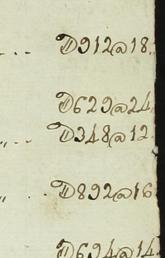 D912@18.
D629@24
D348@12
D892@16
D694@14